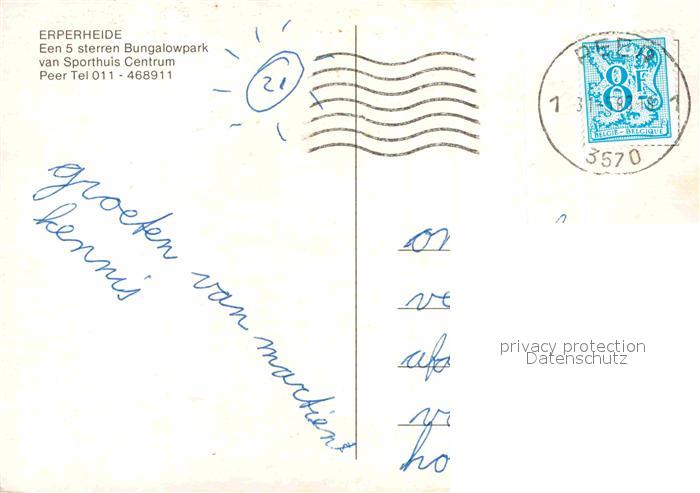 ERPERHEIDE
Een 5 sterren Bungalowpark
van Sporthuis Centrum
Peer Tel 011 - 468911
21
groeten van martien
kennis
PEER
1 1
3570
8F
BELGIE-BELGIQUE
on
ve
afz
v
ho
privacy protection
Datenschutz